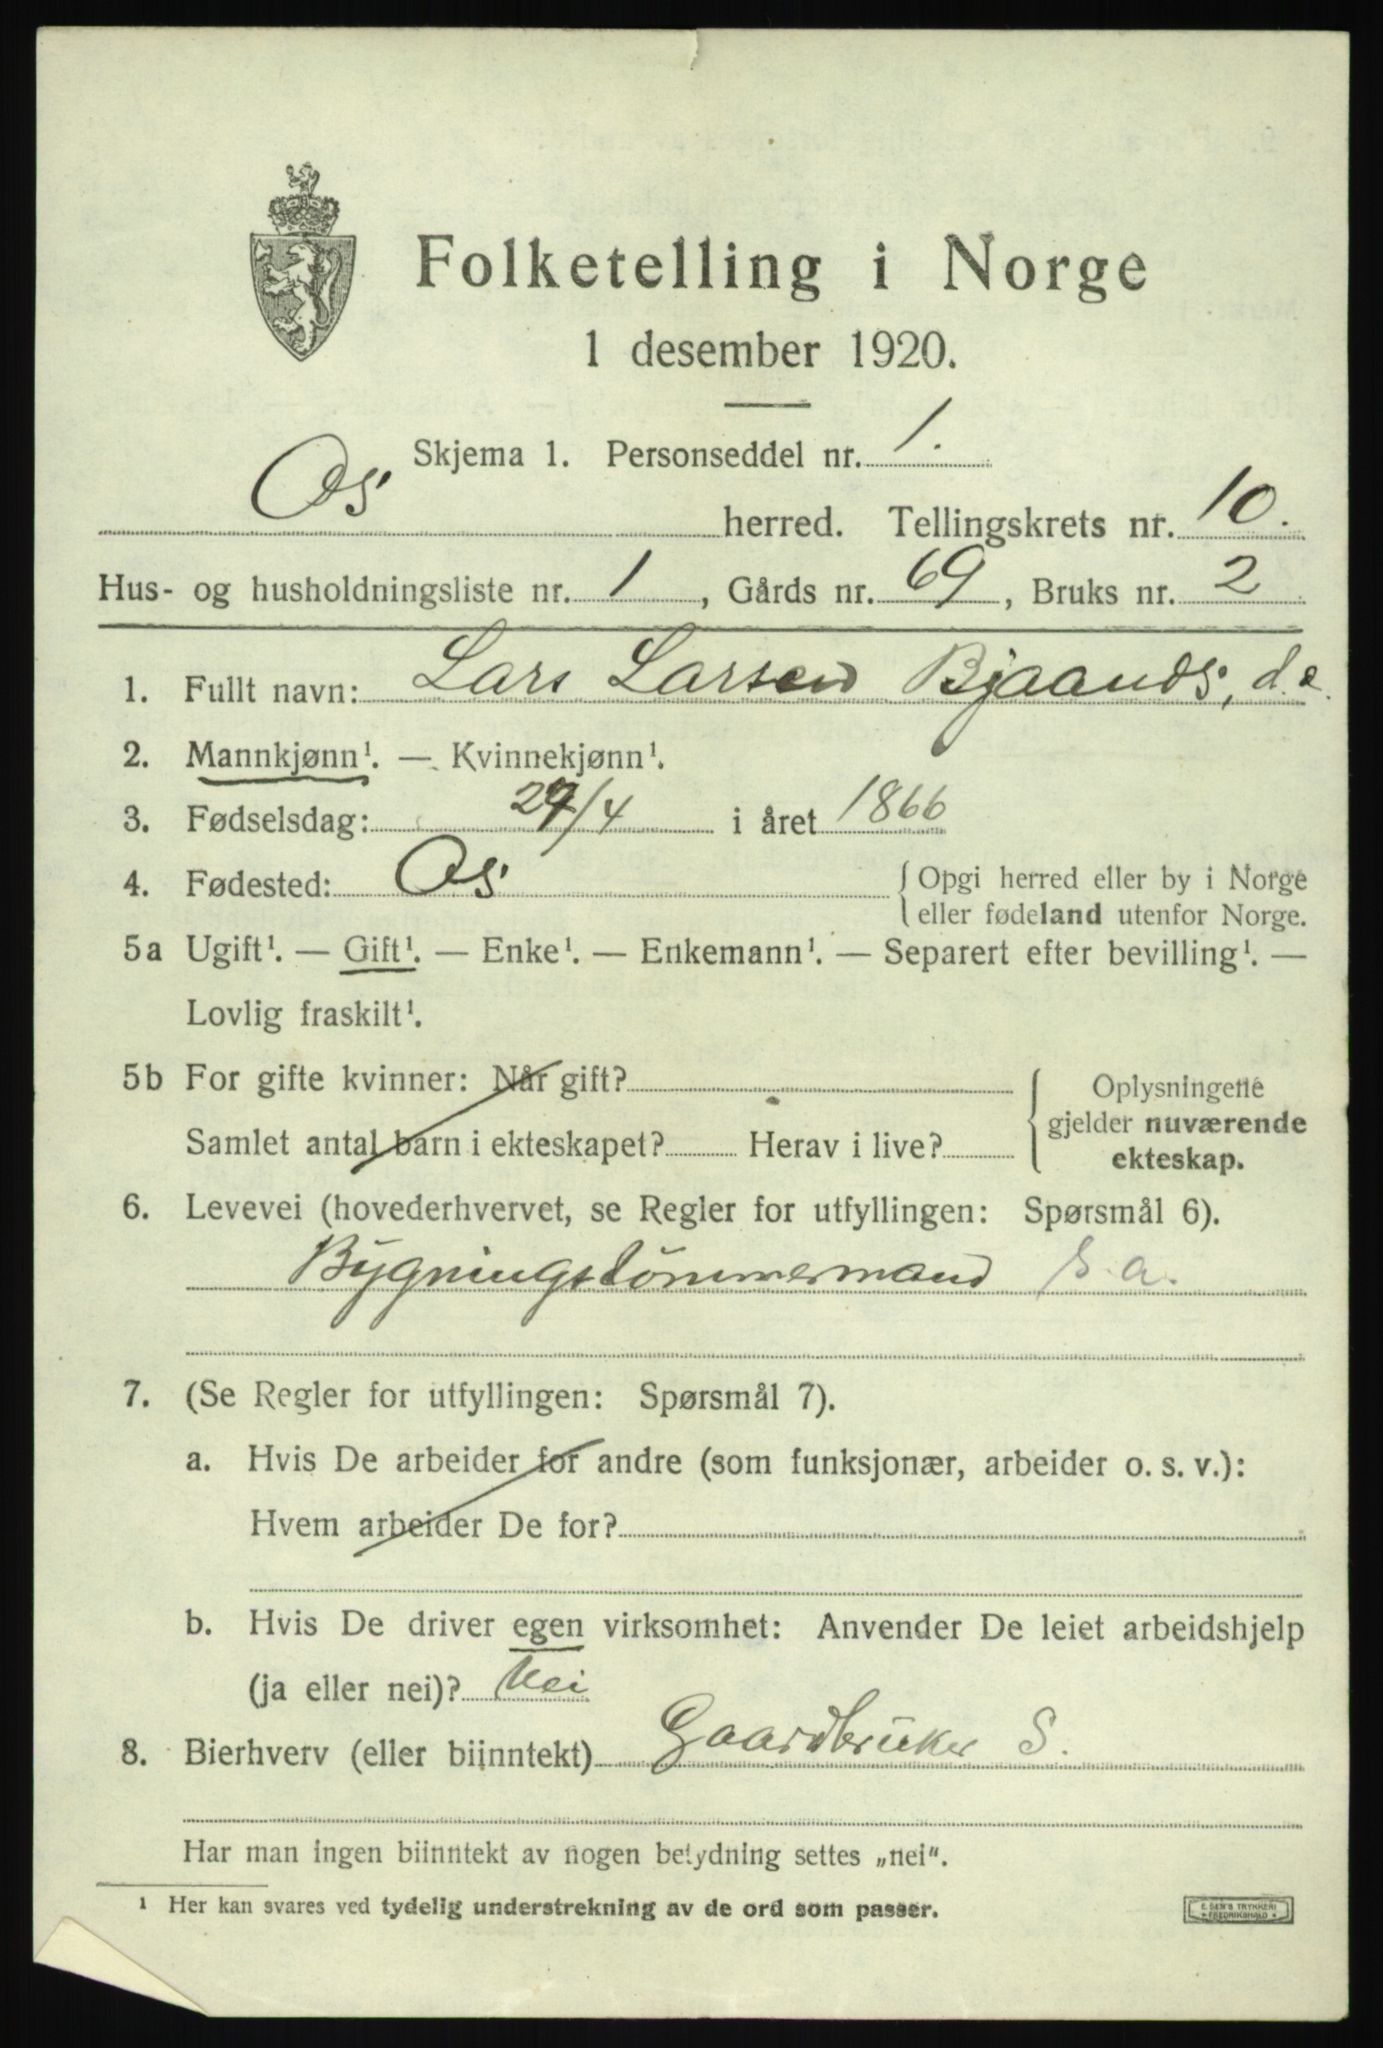 Folketelling i Norge
1 desember 1920.
Skjema 1. Personseddel nr. 1.
Os herred. Tellingskrets nr. 10.
Hus- og husholdningsliste nr. 1, Gårds nr. 69, Bruks nr. 2
1. Fullt navn: Lars Larsen Bjaanæs, d.e.
2. Mannkjønn¹. — Kvinnekjønn¹.
3. Fødselsdag: 27/4 i året 1866
4. Fødested: Os { Opgi herred eller by i Norge
eller fødeland utenfor Norge.
5a Ugift¹. — Gift¹. — Enke¹. — Enkemann¹. — Separert efter bevilling¹. —
Lovlig fraskilt¹.
5b For gifte kvinner: Når gift?
Samlet antal barn i ekteskapet? Herav i live?
Oplysningene
gjelder nuværende
ekteskap.
6. Levevei (hovederhvervet, se Regler for utfyllingen: Spørsmål 6).
Bygningstömmermand s.a.
7. (Se Regler for utfyllingen: Spørsmål 7).
a. Hvis De arbeider for andre (som funksjonær, arbeider o. s. v.):
Hvem arbeider De for?
b. Hvis De driver egen virksomhet: Anvender De leiet arbeidshjelp
(ja eller nei)? Nei
8. Bierhverv (eller biinntekt) Gaardbruker S.
Har man ingen biinntekt av nogen betydning settes „nei“.
¹ Her kan svares ved tydelig understrekning av de ord som passer.
E. SEM'S TRYKKERI
FREDRIKSHALD